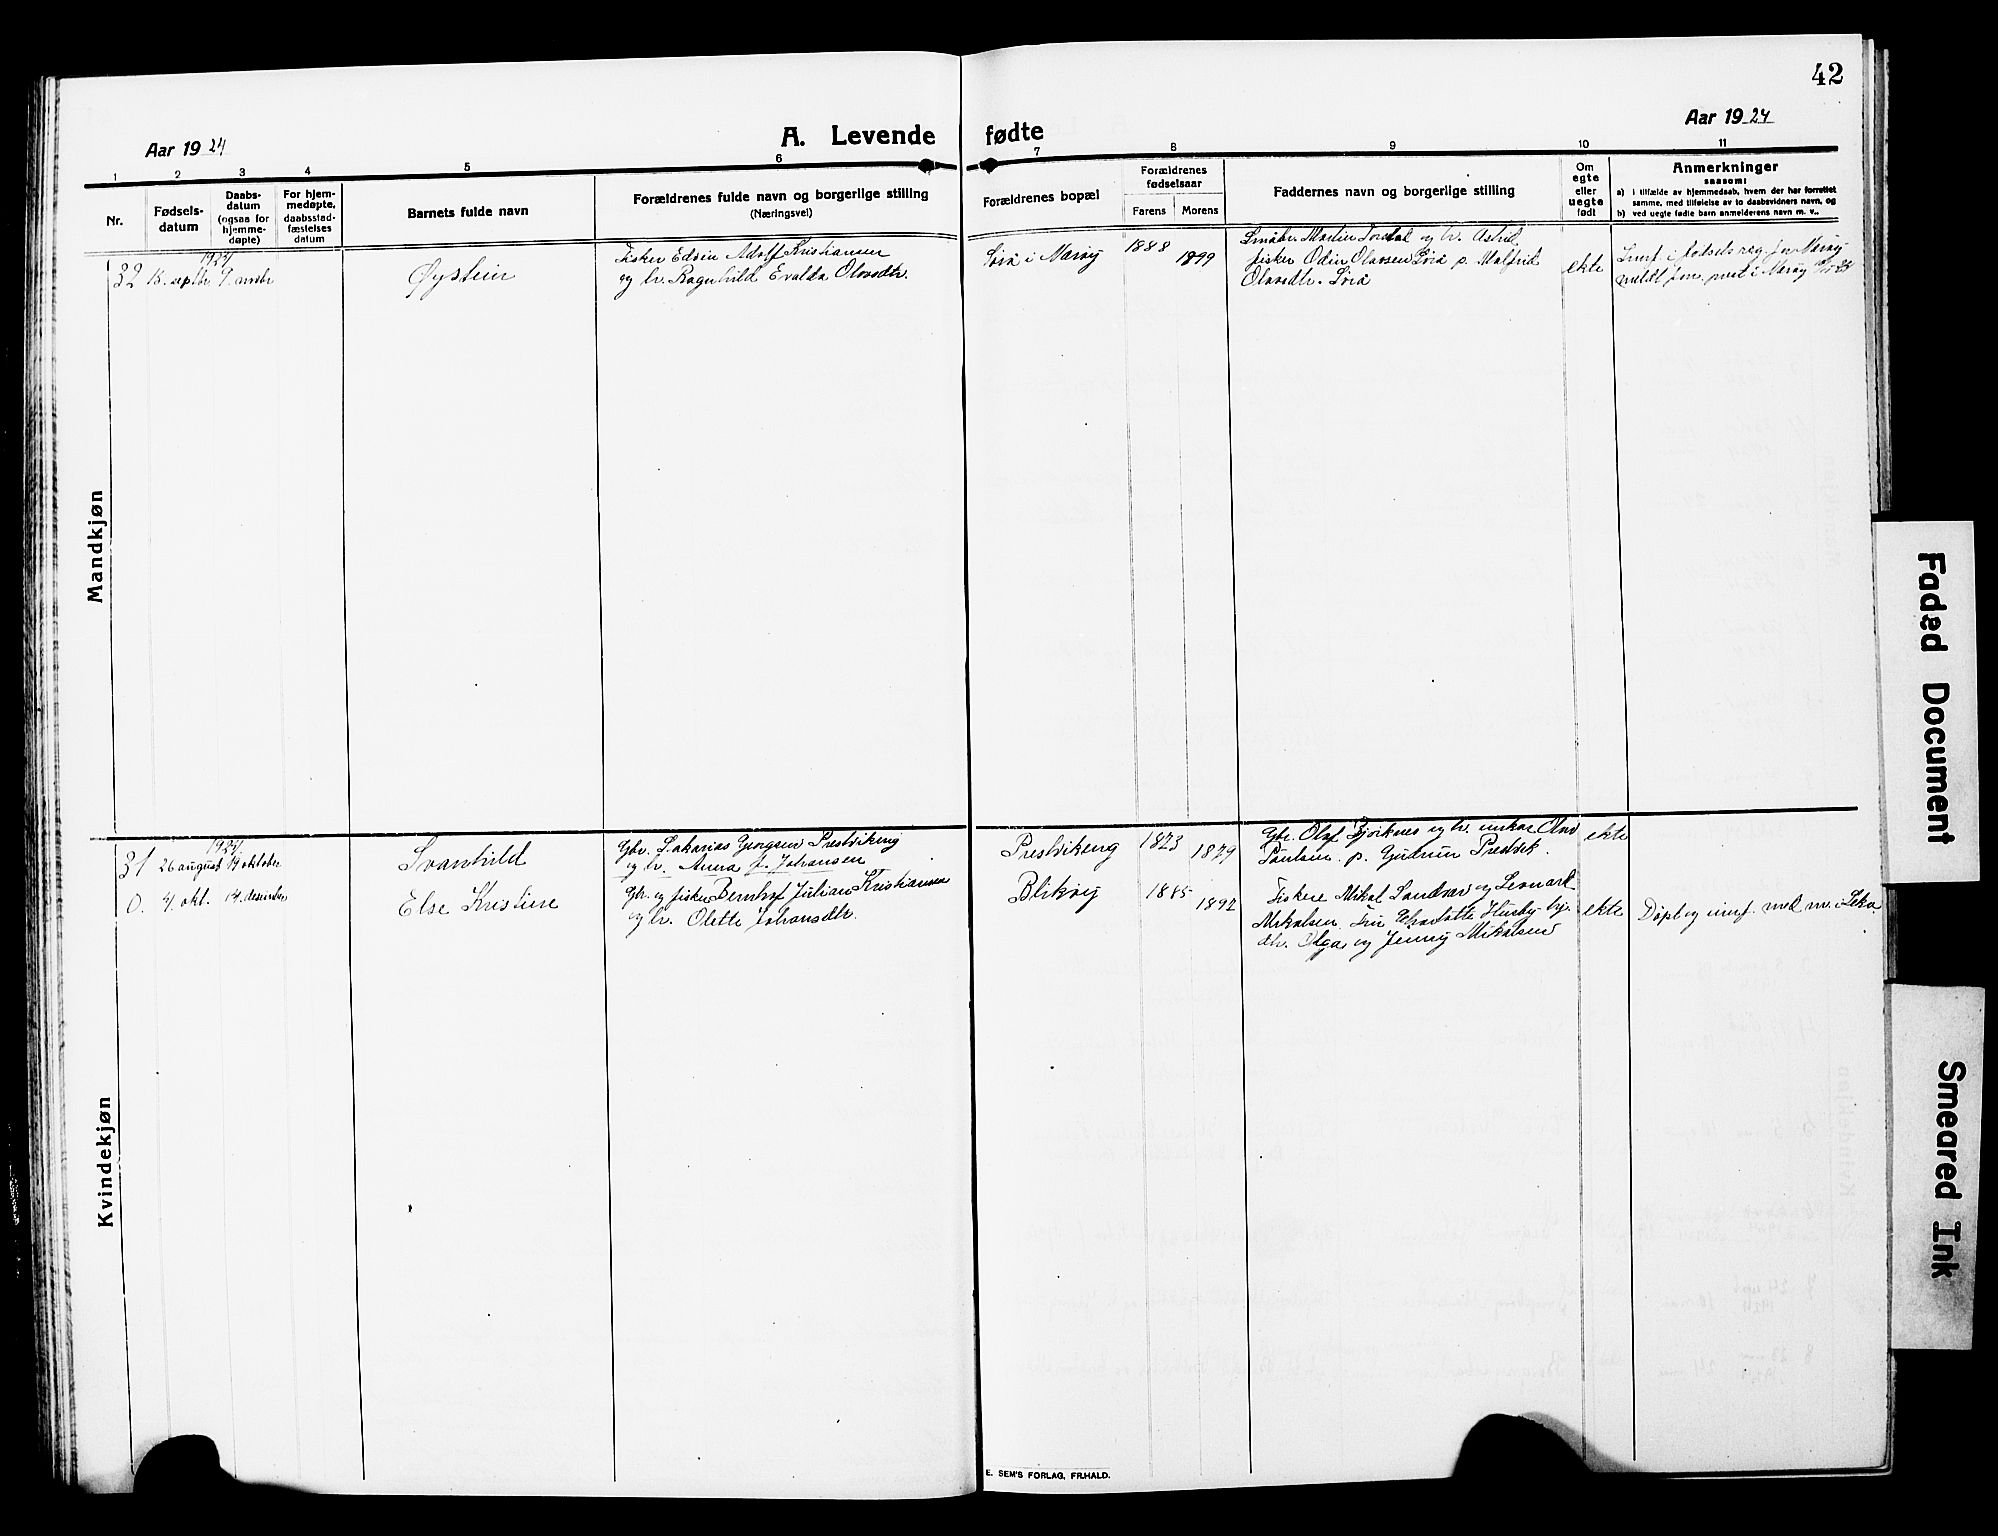 42
Aar 1924
A. Levende fødte
Aar 1924
1 2 3 4 5 6 7 8 9 10 11
Nr.
Fødsels-
datum
Daabs-
datum
(ogsaa for
hjemme-
døpte)
For hjem-
medøpte,
daabsstad-
fæstelses
datum
Barnets fulde navn
Forældrenes fulde navn og borgerlige stilling
(Næringsvei)
Forældrenes bopæl
Forældrenes
fødselsaar
Farens Morens
Faddernes navn og borgerlige stilling
Om
egte
eller
uegte
født
Anmerkninger
saasom:
a) i tilfælde av hjemmedaab, hvem der har forrettet
samme, med tilføielse av to daabsvidners navn, og
b) ved uegte fødte barn anmelderens navn m. v..
Mandkjøn
1924
32 15. septbr 9. novbr
Øystein
Fisker Edvin Adolf Kristiansen
og hr. Ragnhild Evalda Olavsdtr.
Sørå i Nærøy
1888
1899
Småbr. Martin Tordal og hr. Astrid
fisker Odin Olavsen Sørå p. Malfrid
Olavsdtr. Sørå
ekte
i fødselsreg. for Nærøy
meldt i Nærøy
Kvindekjøn
1924
31 26 august 19 oktober
Svanhild
Gbr. Sakarias Georgsen Prestvikeng
og hr. Anna f. Johansen
Prestvikeng
1873
1879
Gbr. Olaf Bjørknes og hr. ungkar Olav
Paulsen p. Gudrun Prestvik.
ekte
0. 4. okt. 14. desember
Else Kristine
Gbr. og fisker Bernhof Julian Kristiansen
og hr. Olette Johansdtr.
Blikøy
1885
1892
Fiskere Mikal Sandvær og Leonard
Mikalsen. Fru Charlotte Husby. hj.
dtr. Olga og Jenny Mikalsen
ekte
Døpt og innf. med nr. i Leka
E. SEM'S FORLAG, FR.HALD.
Faded Document
Smeared Ink